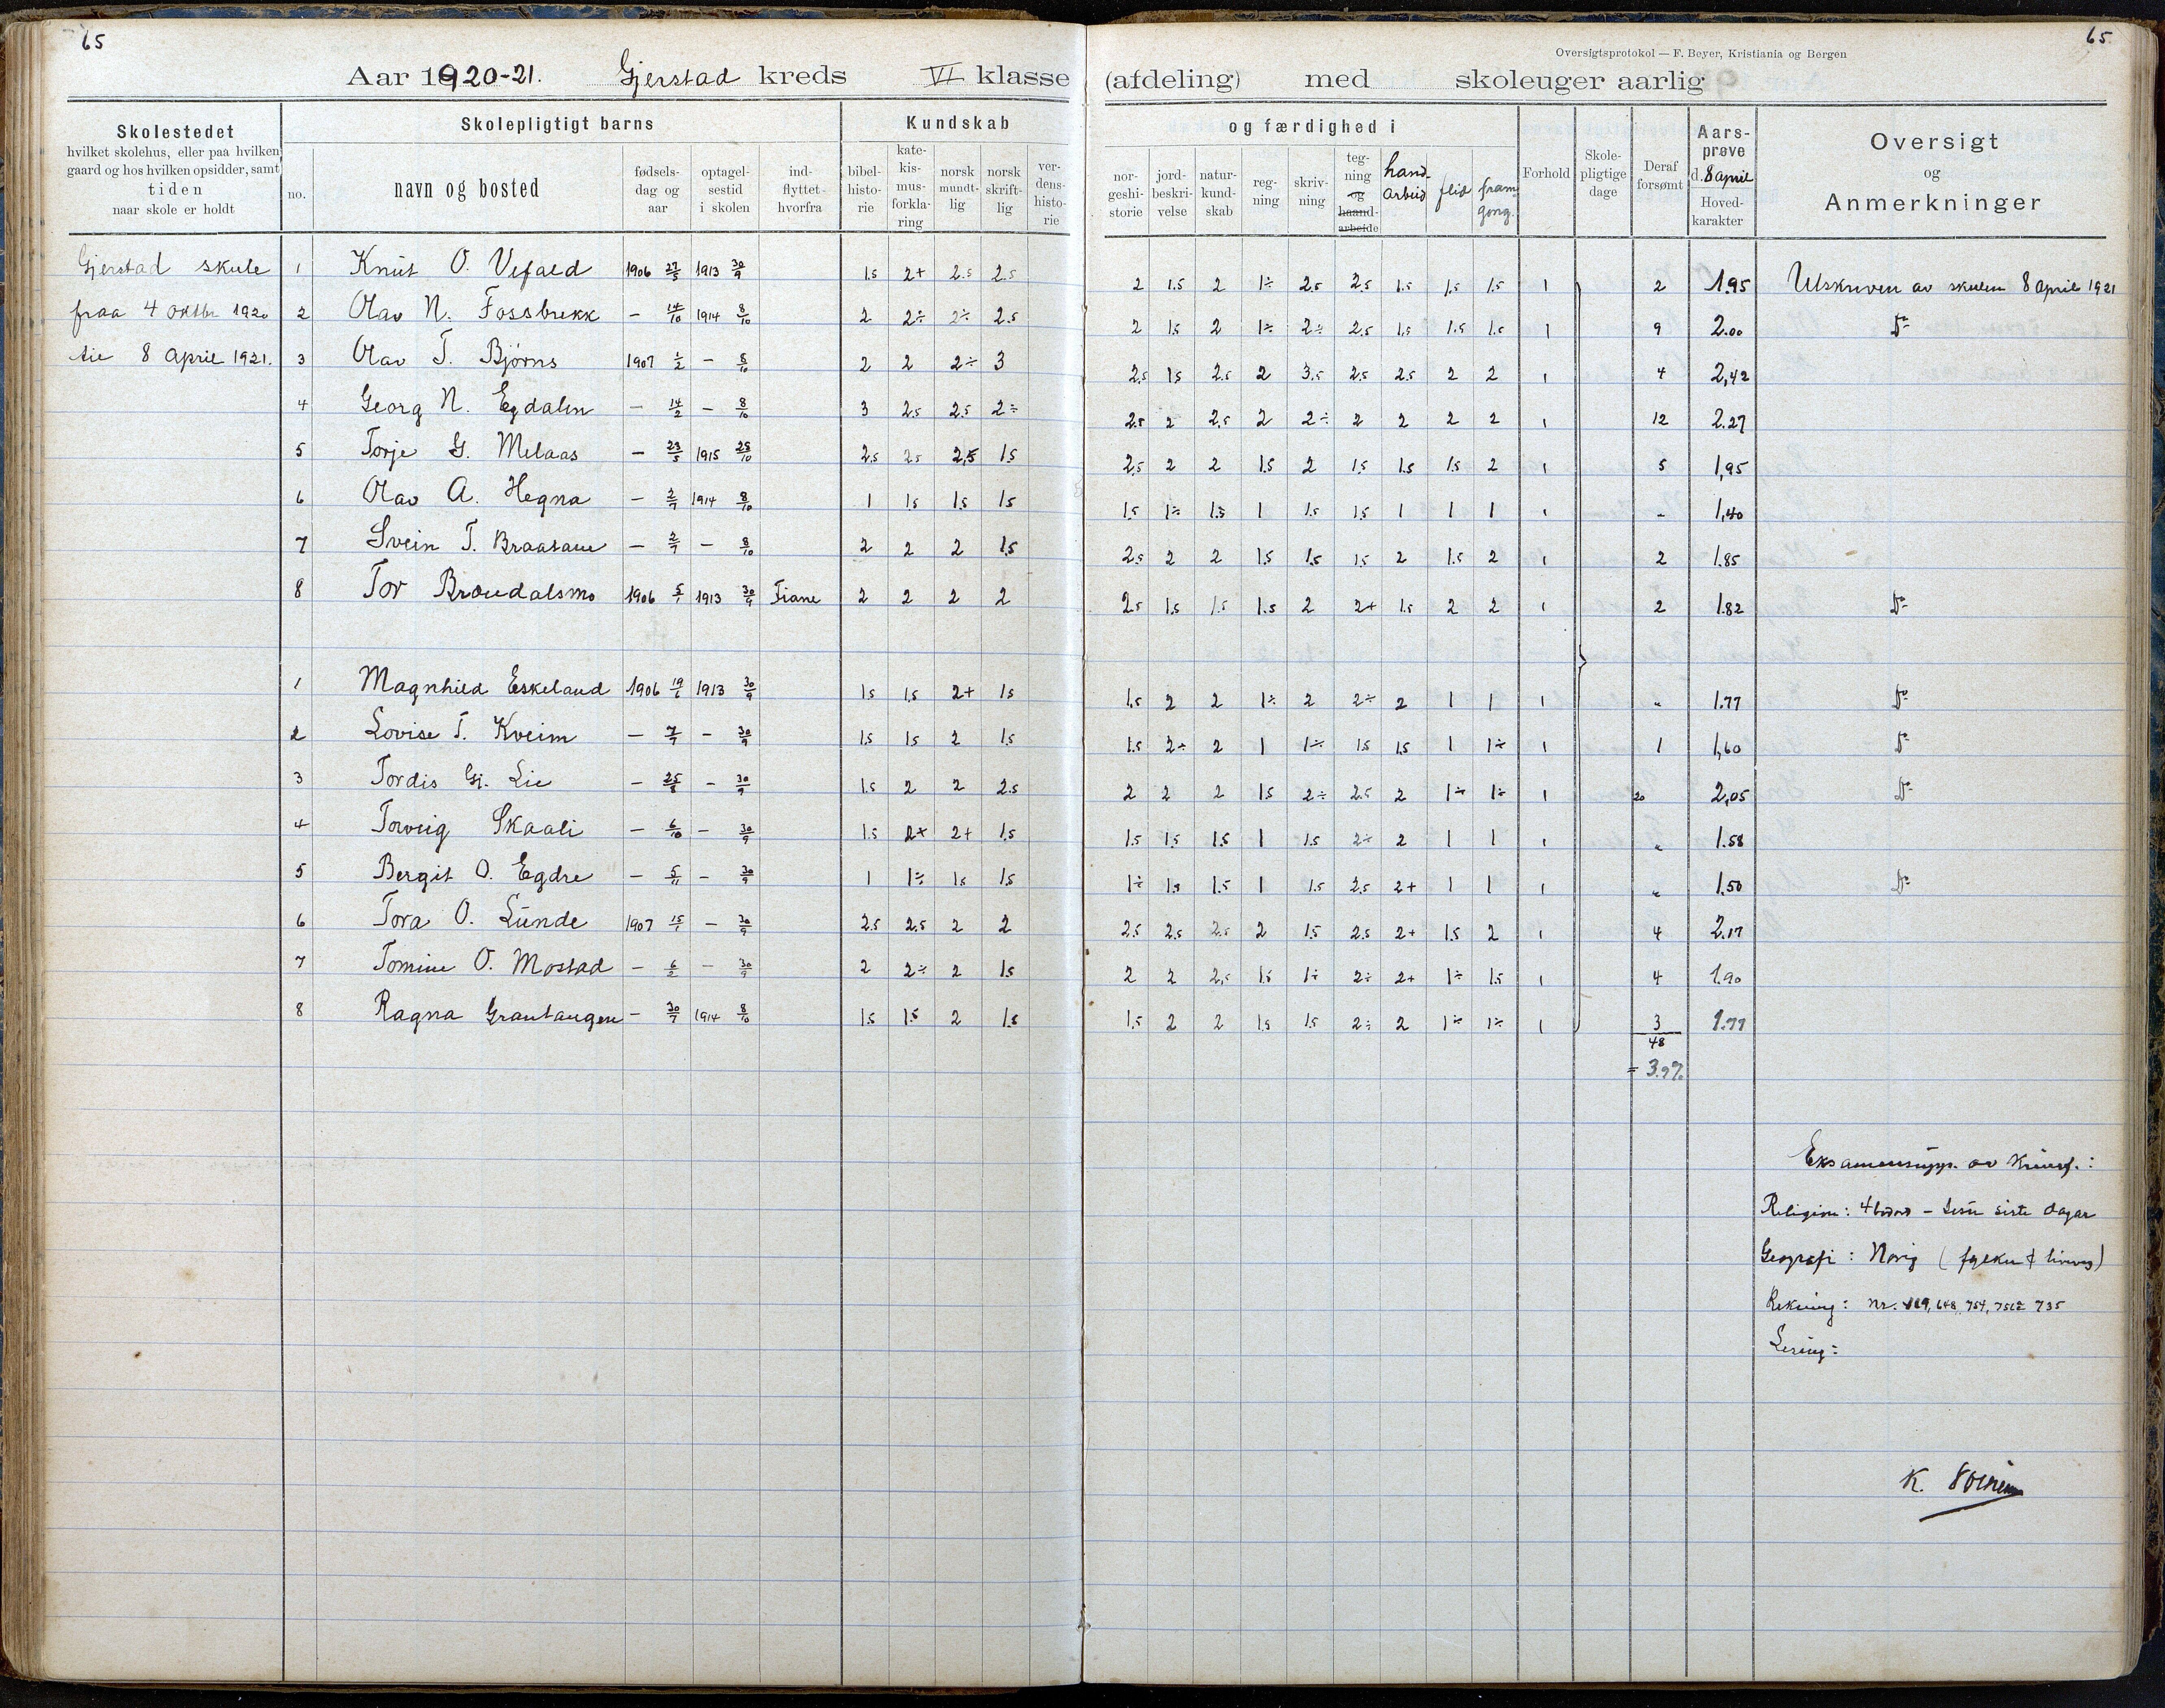 65
65
Oversigtsprotokol — F. Beyer, Kristiania og Bergen
Aar 1920-21. Gjerstad kreds VI klasse (afdeling) med skoleuger aarlig
Skolestedet
hvilket skolehus, eller paa hvilken
gaard og hos hvilken opsidder, samt
tiden
naar skole er holdt
Skolepligtigt barns
no.
navn og bosted
fødsels-
dag og
aar
optagel-
sestid
i skolen
ind-
flyttet
hvorfra
Kundskab
bibel-
histo-
rie
kate-
kis-
mus-
forkla-
ring
norsk
mundt-
lig
norsk
skrift-
lig
ver-
dens-
histo-
rie
og færdighed i
nor-
geshi-
storie
jord-
beskri-
velse
natur-
kund-
skab
reg-
ning
skriv-
ning
teg-
ning
og
haand-
arbeide
hand-
arbeid
flid
fram
gong.
Forhold
Skole-
pligtige
dage
Deraf
forsømt
Aars-
prøve
d. 8 april
Hoved-
karakter
Oversigt
og
Anmerkninger
Gjerstad skule
fraa 4 oktbr 1920
til 8 april 1921.
1 Knut O. Vefald 1906 27/5 1913 30/9 1.5 2+ 2.5 2.5 2 1.5 2 1÷ 2.5 2.5 1.5 1.5 1.5 1 2 1.95 Utskriven av skulen 8 april 1921
2 Olav N. Fossbrekk — 14/10 1914 8/10 2 2÷ 2÷ 2.5 2 1.5 2 1÷ 2÷ 2.5 1.5 1.5 1.5 1 9 2.00 Do
3 Olav T. Bjørns 1907 1/2 — 8/10 2 2 2÷ 3 2.5 1.5 2.5 2 3.5 2.5 2.5 2 2 1 4 2,42
4 Georg N. Egdalen — 14/2 — 8/10 3 2.5 2.5 2÷ 2.5 2 2.5 2 2÷ 2 2 2 2 1 12 2.27
5 Torje G. Melaas — 23/5 1915 25/10 2.5 2.5 2,5 1.5 2.5 2 2 1.5 2 1.5 1.5 1.5 2 1 5 1,95
6 Olav A. Hegna — 2/7 1914 8/10 1 1.5 1.5 1.5 1.5 1÷ 1.5 1 1.5 1.5 1 1 1 1 „ 1,40
7 Svein T. Braatane — 2/7 — 8/10 2 2 2 1.5 2.5 2 2 1.5 1.5 1.5 2 1.5 2 1 2 1.85
8 Tor Brøudalsmo 1906 5/1 1913 30/9 Fiane 2 2 2 2 2.5 1.5 1.5 1.5 2 2+ 1.5 2 2 1 2 1.82 Do
1 Magnhild Eskeland 1906 19/1 1913 30/9 1.5 1.5 2+ 1.5 1.5 2 2 1÷ 2 2÷ 2 1 1 1 „ 1.77 Do
2 Lovise T. Kveim — 7/7 — 30/9 1.5 1.5 2 1.5 1.5 2÷ 2 1 1÷ 1.5 1.5 1 1÷ 1 1 1,60 Do
3 Tordis Gj. Lie — 25/8 — 30/9 1.5 2 2 2.5 2 2 2 1.5 2÷ 2.5 2 1÷ 1÷ 1 20 2,05 Do
4 Torveig Skaali — 6/10 — 30/9 1.5 2+ 2+ 1.5 1.5 1.5 1.5 1 1.5 2÷ 2 1 1 1 „ 1.58
5 Bergit O. Egdre — 5/11 — 30/9 1 1÷ 1.5 1.5 1÷ 1.5 1.5 1 1.5 2.5 2+ 1 1 1 „ 1.50 Do
6 Tora O. Lunde 1907 15/1 — 30/9 2.5 2.5 2 2 2.5 2.5 2.5 2 1.5 2.5 2+ 1.5 2 1 4 2.17
7 Tomine O. Mostad — 6/2 — 30/9 2 2÷ 2 1.5 2 2 2,5 1.5 1÷ 2÷ 2+ 1÷ 1.5 1 4 1.90
8 Ragna Grautaugen — 30/7 1914 8/10 1.5 1.5 2 1.5 1.5 2 2 1.5 1.5 2÷ 2 1÷ 1÷ 1 3 1.77
48
= 3.9%
Religion: 4 bodord – Jesu siste dagar
Geografi: Norig
Rekning: nr. 648, 754, 735
Lesing:
K.